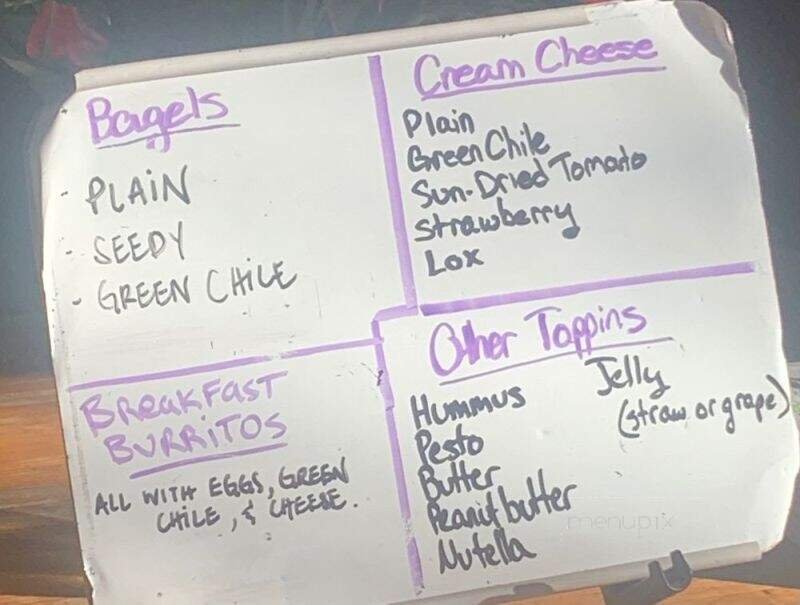 Bagels
- PLAIN
- SEEDY
- GREEN CHILE
Cream Cheese
Plain
Green Chile
Sun-Dried Tomato
Strawberry
Lox
BREAKFAST
BURRITOS
ALL WITH EGGS, GREEN
CHILE, & CHEESE.
Other Toppins
Hummus
Pesto
Butter
Peanut butter
Nutella
Jelly
(straw or grape)
menupix